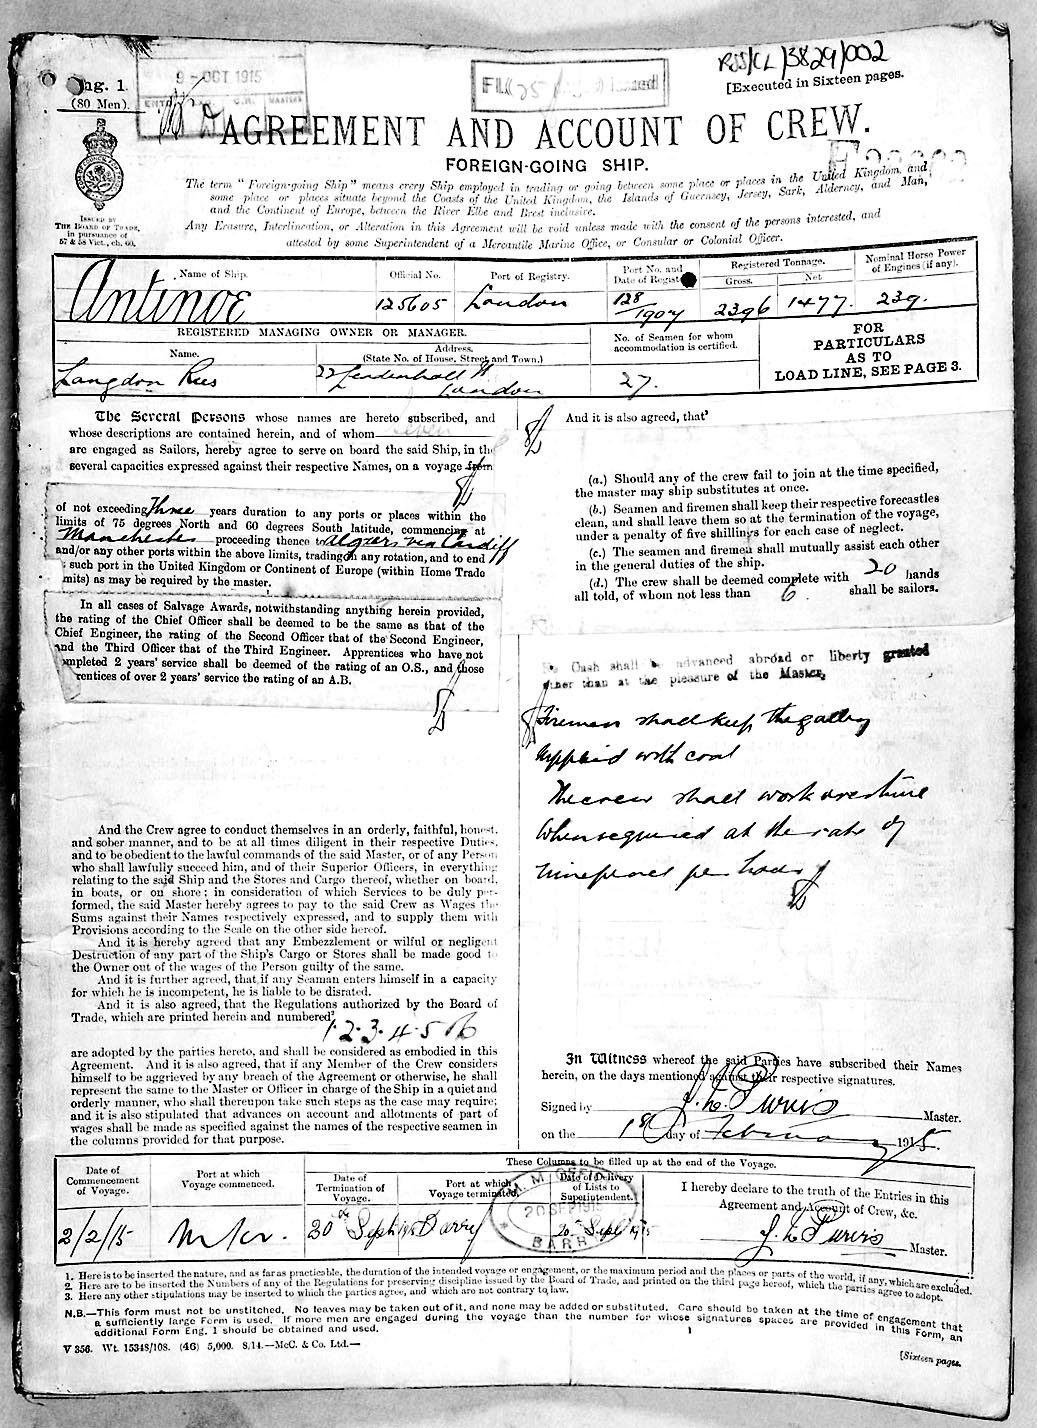 RSS/CL/3829/002
[Executed in Sixteen pages.
9 - OCT 1915
ng. 1.
(80 Men).
AGREEMENT AND ACCOUNT OF CREW.
FOREIGN-GOING SHIP.
The term "Foreign-going Ship" means every Ship employed in trading or going between some place or places in the United Kingdom, and
some place or places situate beyond the Coasts of the United Kingdom, the Islands of Guernsey, Jersey, Sark, Alderney, and Man,
and the Continent of Europe, between the River Elbe and Brest inclusive.
Any Erasure, Interlineation, or Alteration in this Agreement will be void unless made with the consent of the persons interested, and
attested by some Superintendent of a Mercantile Marine Office, or Consular or Colonial Officer.
ISSUED BY
THE BOARD OF TRADE,
in pursuance of
57 & 58 Vict., ch. 60.
Name of Ship.
Official No.
Port of Registry.
Port No. and
Date of Regist
Registered Tonnage.
Gross.
Net.
Nominal Horse Power
of Engines (if any).
Antinoe
125605
London
128/1907
2396
1477.
239.
REGISTERED MANAGING OWNER OR MANAGER.
Name.
Address.
(State No. of House, Street and Town.)
No. of Seamen for whom
accommodation is certified.
FOR
PARTICULARS
AS TO
LOAD LINE, SEE PAGE 3.
Langdon Rees
22 Leadenhall St
London
27.
The Several Persons whose names are hereto subscribed, and
whose descriptions are contained herein, and of whom seven
are engaged as Sailors, hereby agree to serve on board the said Ship, in the
several capacities expressed against their respective Names, on a voyage from
of not exceeding Three years duration to any ports or places within the
limits of 75 degrees North and 60 degrees South latitude, commencing at
Manchester proceeding thence to Algiers via Cardiff
and/or any other ports within the above limits, trading in any rotation, and to end
such port in the United Kingdom or Continent of Europe (within Home Trade
mits) as may be required by the master.
In all cases of Salvage Awards, notwithstanding anything herein provided,
the rating of the Chief Officer shall be deemed to be the same as that of the
Chief Engineer, the rating of the Second Officer that of the Second Engineer,
and the Third Officer that of the Third Engineer. Apprentices who have not
ompleted 2 years' service shall be deemed of the rating of an O.S., and those
rentices of over 2 years' service the rating of an A.B.
And the Crew agree to conduct themselves in an orderly, faithful, honest,
and sober manner, and to be at all times diligent in their respective Duties,
and to be obedient to the lawful commands of the said Master, or of any Person
who shall lawfully succeed him, and of their Superior Officers, in everything
relating to the said Ship and the Stores and Cargo thereof, whether on board,
in boats, or on shore; in consideration of which Services to be duly per-
formed, the said Master hereby agrees to pay to the said Crew as Wages the
Sums against their Names respectively expressed, and to supply them with
Provisions according to the Scale on the other side hereof.
And it is hereby agreed that any Embezzlement or wilful or negligent
Destruction of any part of the Ship's Cargo or Stores shall be made good to
the Owner out of the wages of the Person guilty of the same.
And it is further agreed, that if any Seaman enters himself in a capacity
for which he is incompetent, he is liable to be disrated.
And it is also agreed, that the Regulations authorized by the Board of
Trade, which are printed herein and numbered²
1. 2. 3. 4. 5 & 6
are adopted by the parties hereto, and shall be considered as embodied in this
Agreement. And it is also agreed, that if any Member of the Crew considers
himself to be aggrieved by any breach of the Agreement or otherwise, he shall
represent the same to the Master or Officer in charge of the Ship in a quiet and
orderly manner, who shall thereupon take such steps as the case may require;
and it is also stipulated that advances on account and allotments of part of
wages shall be made as specified against the names of the respective seamen in
the columns provided for that purpose.
And it is also agreed, that³
(a.) Should any of the crew fail to join at the time specified,
the master may ship substitutes at once.
(b.) Seamen and firemen shall keep their respective forecastles
clean, and shall leave them so at the termination of the voyage,
under a penalty of five shillings for each case of neglect.
(c.) The seamen and firemen shall mutually assist each other
in the general duties of the ship.
(d.) The crew shall be deemed complete with 20 hands
all told, of whom not less than 6 shall be sailors.
No Cash shall be advanced abroad or liberty granted
other than at the pleasure of the Master.
Firemen shall keep the galley
supplied with coal
The crew shall work overtime
When required at the rate of
ninepence per hour
In Witness whereof the said Parties have subscribed their Names
herein, on the days mentioned against their respective signatures.
Signed by J. L. Purvis Master.
on the 1st day of February 1915.
These Columns to be filled up at the end of the Voyage.
Date of
Commencement
of Voyage.
Port at which
Voyage commenced.
Date of
Termination of
Voyage.
Port at which
Voyage terminated.
Date of Delivery
of Lists to
Superintendent.
I hereby declare to the truth of the Entries in this
Agreement and Account of Crew, &c.
2/2/15
M/cr.
20th Sept 1915
Barry
20th Sept 1915
J. L. Purvis Master.
M. M. OFFICE
20 SEP 1915
BARRY
1. Here is to be inserted the nature, and as far as practicable, the duration of the intended voyage or engagement, or the maximum period and the places or parts of the world, if any, which are excluded.
2. Here are to be inserted the Numbers of any of the Regulations for preserving discipline issued by the Board of Trade, and printed on the third page hereof, which the parties agree to adopt.
3. Here any other stipulations may be inserted to which the parties agree, and which are not contrary to law.
N.B.—This form must not be unstitched. No leaves may be taken out of it, and none may be added or substituted. Care should be taken at the time of engagement that
a sufficiently large Form is used. If more men are engaged during the voyage than the number for whose signatures spaces are provided in this Form, an
additional Form Eng. 1 should be obtained and used.
V 356. Wt. 15348/108. (46) 5,000. 8/14.—McC. & Co. Ltd.—
[Sixteen pages.